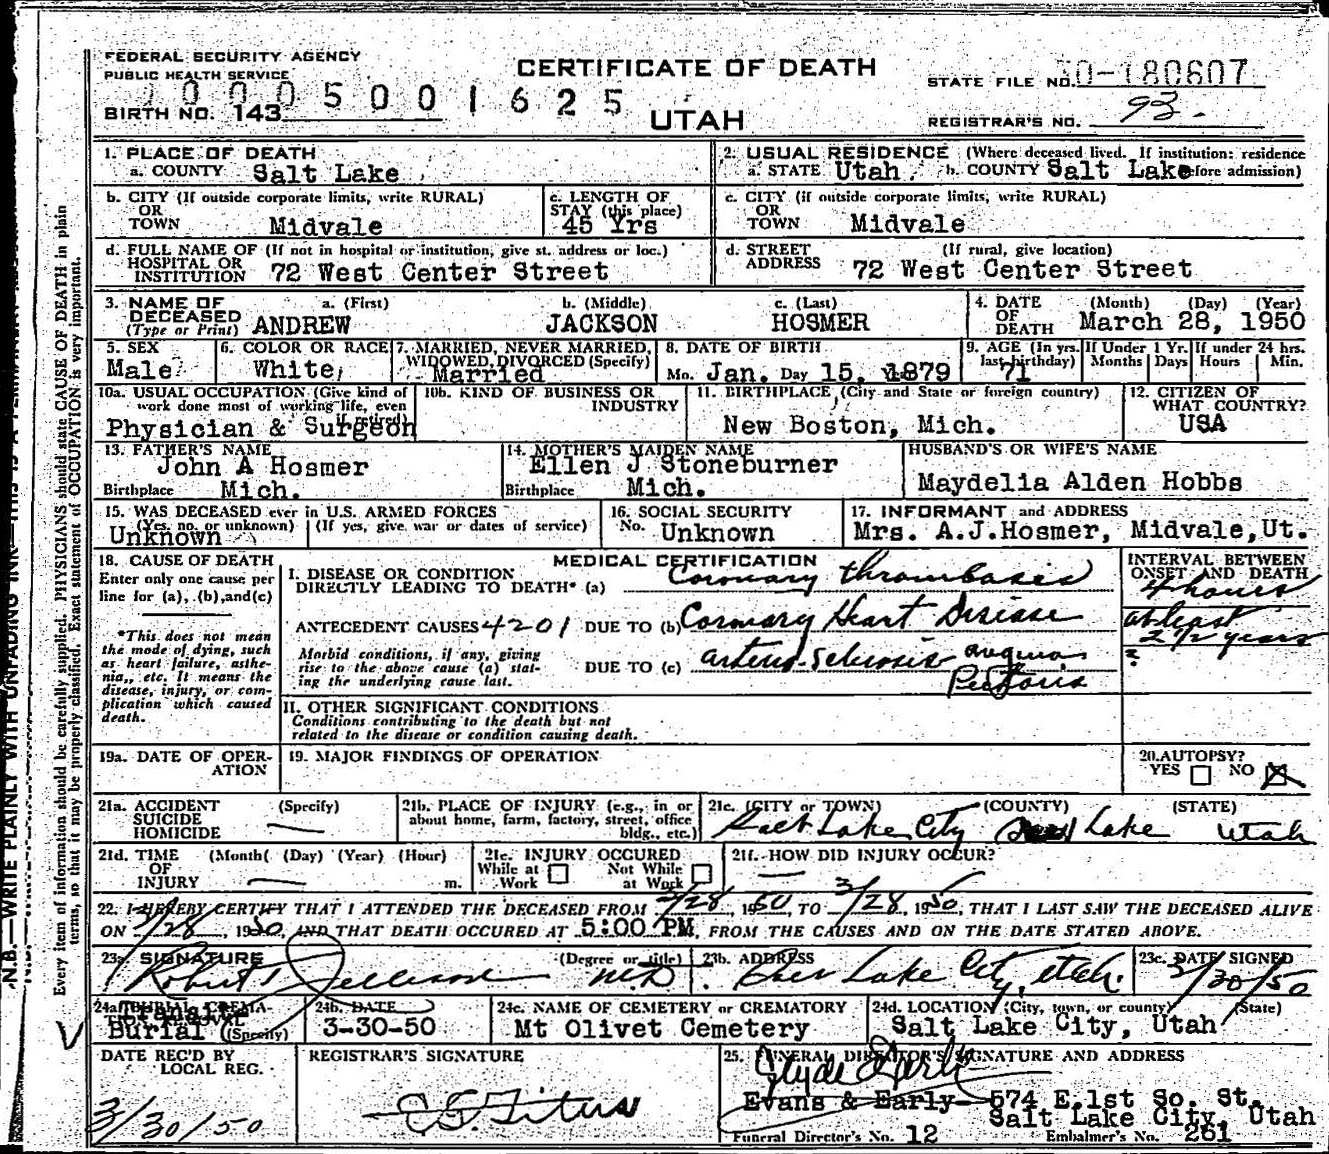 FEDERAL SECURITY AGENCY
PUBLIC HEALTH SERVICE
CERTIFICATE OF DEATH
STATE FILE NO. 50-180607
0005001625
BIRTH NO. 143
UTAH
REGISTRAR'S NO. 93.
1. PLACE OF DEATH
a. COUNTY Salt Lake
2. USUAL RESIDENCE (Where deceased lived. If institution: residence
a. STATE Utah b. COUNTY Salt Lake before admission)
b. CITY (If outside corporate limits, write RURAL)
OR
TOWN Midvale
c. LENGTH OF
STAY (this place)
45 Yrs
c. CITY (if outside corporate limits, write RURAL)
OR
TOWN Midvale
d. FULL NAME OF (If not in hospital or institution, give st. address or loc.)
HOSPITAL OR
INSTITUTION 72 West Center Street
d. STREET (If rural, give location)
ADDRESS 72 West Center Street
3. NAME OF DECEASED (Type or Print)
a. (First) b. (Middle) c. (Last)
ANDREW JACKSON HOSMER
4. DATE OF DEATH (Month) (Day) (Year)
March 28, 1950
5. SEX
Male
6. COLOR OR RACE
White
7. MARRIED, NEVER MARRIED,
WIDOWED, DIVORCED (Specify)
Married
8. DATE OF BIRTH
Mo. Jan. Day 15, 1879
9. AGE (In yrs. last birthday)
71
If Under 1 Yr. Months Days
If under 24 hrs. Hours Min.
10a. USUAL OCCUPATION (Give kind of
work done most of working life, even
if retired)
Physician & Surgeon
10b. KIND OF BUSINESS OR
INDUSTRY
11. BIRTHPLACE (City and State or foreign country)
New Boston, Mich.
12. CITIZEN OF
WHAT COUNTRY?
USA
13. FATHER'S NAME
John A Hosmer
Birthplace Mich.
14. MOTHER'S MAIDEN NAME
Ellen J Stoneburner
Birthplace Mich.
HUSBAND'S OR WIFE'S NAME
Maydelia Alden Hobbs
15. WAS DECEASED ever in U.S. ARMED FORCES
(Yes, no, or unknown) (If yes, give war or dates of service)
Unknown
16. SOCIAL SECURITY
No. Unknown
17. INFORMANT and ADDRESS
Mrs. A.J.Hosmer, Midvale,Ut.
18. CAUSE OF DEATH
Enter only one cause per
line for (a), (b),and(c)
*This does not mean
the mode of dying, such
as heart failure, asthe-
nia,, etc. It means the
disease, injury, or com-
plication which caused
death.
MEDICAL CERTIFICATION
I. DISEASE OR CONDITION
DIRECTLY LEADING TO DEATH* (a) Coronary thrombosis
ANTECEDENT CAUSES 4201 DUE TO (b) Coronary Heart Disease
Morbid conditions, if any, giving
rise to the above cause (a) stat-
ing the underlying cause last.
DUE TO (c) arterio-sclerosis angina
Pectoris
INTERVAL BETWEEN
ONSET AND DEATH
4 hours
at least
2 1/2 years
?
II. OTHER SIGNIFICANT CONDITIONS
Conditions contributing to the death but not
related to the disease or condition causing death.
19a. DATE OF OPER-
ATION
19. MAJOR FINDINGS OF OPERATION
20. AUTOPSY?
YES NO X
21a. ACCIDENT (Specify)
SUICIDE
HOMICIDE
21b. PLACE OF INJURY (e.g., in or
about home, farm, factory, street, office
bldg., etc.)
21c. (CITY or TOWN) (COUNTY) (STATE)
Salt Lake City Lake Utah
21d. TIME (Month( (Day) (Year) (Hour)
OF
INJURY m.
21e. INJURY OCCURED
While at Work Not While at Work
21f. HOW DID INJURY OCCUR?
22. I HEREBY CERTIFY THAT I ATTENDED THE DECEASED FROM 3/28, 1950, TO 3/28, 1950, THAT I LAST SAW THE DECEASED ALIVE
ON 3/28, 1950, AND THAT DEATH OCCURED AT 5:00 PM, FROM THE CAUSES AND ON THE DATE STATED ABOVE.
23a. SIGNATURE (Degree or title)
Robert M.D.
23b. ADDRESS
Salt Lake City, Utah.
23c. DATE SIGNED
3/30/50
24a. BURIAL, CREMA-
TION, REMOVAL (Specify)
Transit
Burial
24b. DATE
3-30-50
24c. NAME OF CEMETERY or CREMATORY
Mt Olivet Cemetery
24d. LOCATION (City, town, or county) (State)
Salt Lake City, Utah
DATE REC'D BY
LOCAL REG.
3/30/50
REGISTRAR'S SIGNATURE
25. FUNERAL DIRECTOR'S SIGNATURE AND ADDRESS
Clyde Early
Evans & Early- 574 E.1st So. St.
Salt Lake City, Utah
Funeral Director's No. 12 Embalmer's No. 261
N.B.—WRITE PLAINLY WITH UNFADING INK—THIS IS A PERMANENT RECORD
Every item of information should be carefully supplied. PHYSICIANS should state CAUSE OF DEATH in plain
terms, so that it may be properly classified. Exact statement of OCCUPATION is very important.